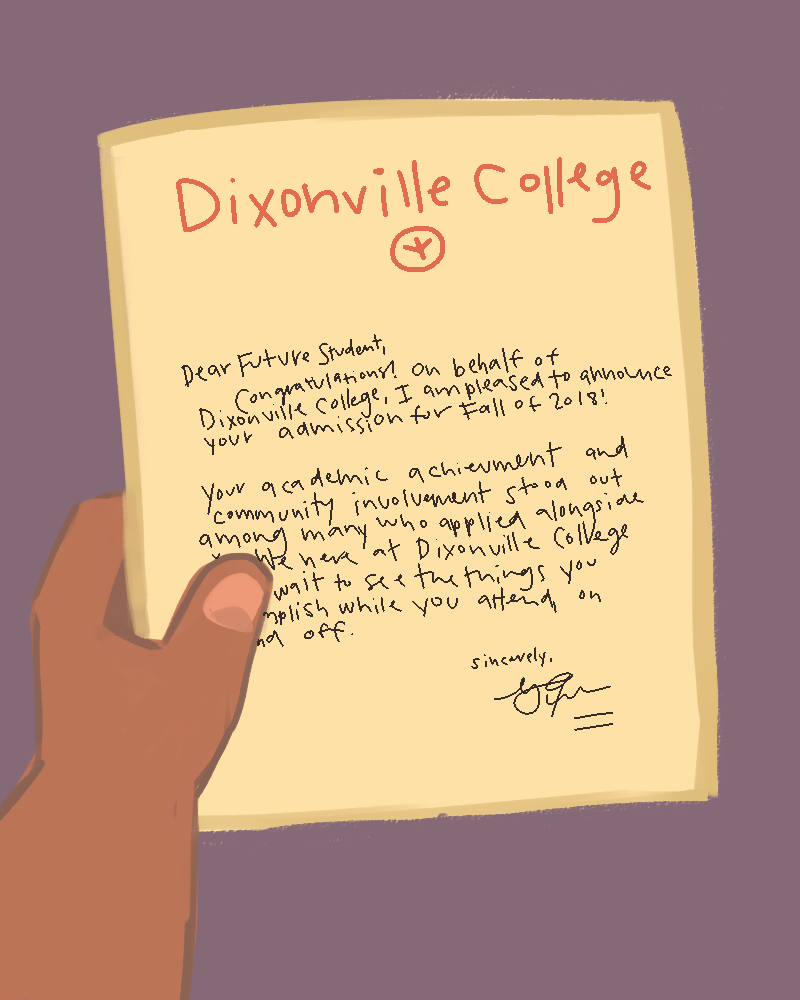 Dixonville College
Dear Future Student,
Congratulations! On behalf of
Dixonville College, I am pleased to announce
your admission for Fall of 2018!
Your academic achievment and
community involvement stood out
among many who applied alongside
We here at Dixonville College
wait to see the things you
mplish while you attend, on
nd off.
sincerely,